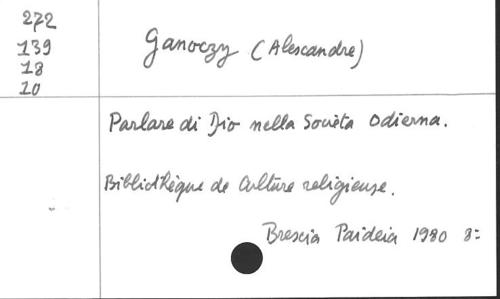 272
139
18
10
Ganoczy (Alescandre)
Parlare di Dio nella Società Odierna.
Bibliothèque de Culture religieuse.
Brescia Paideia 1980 8=